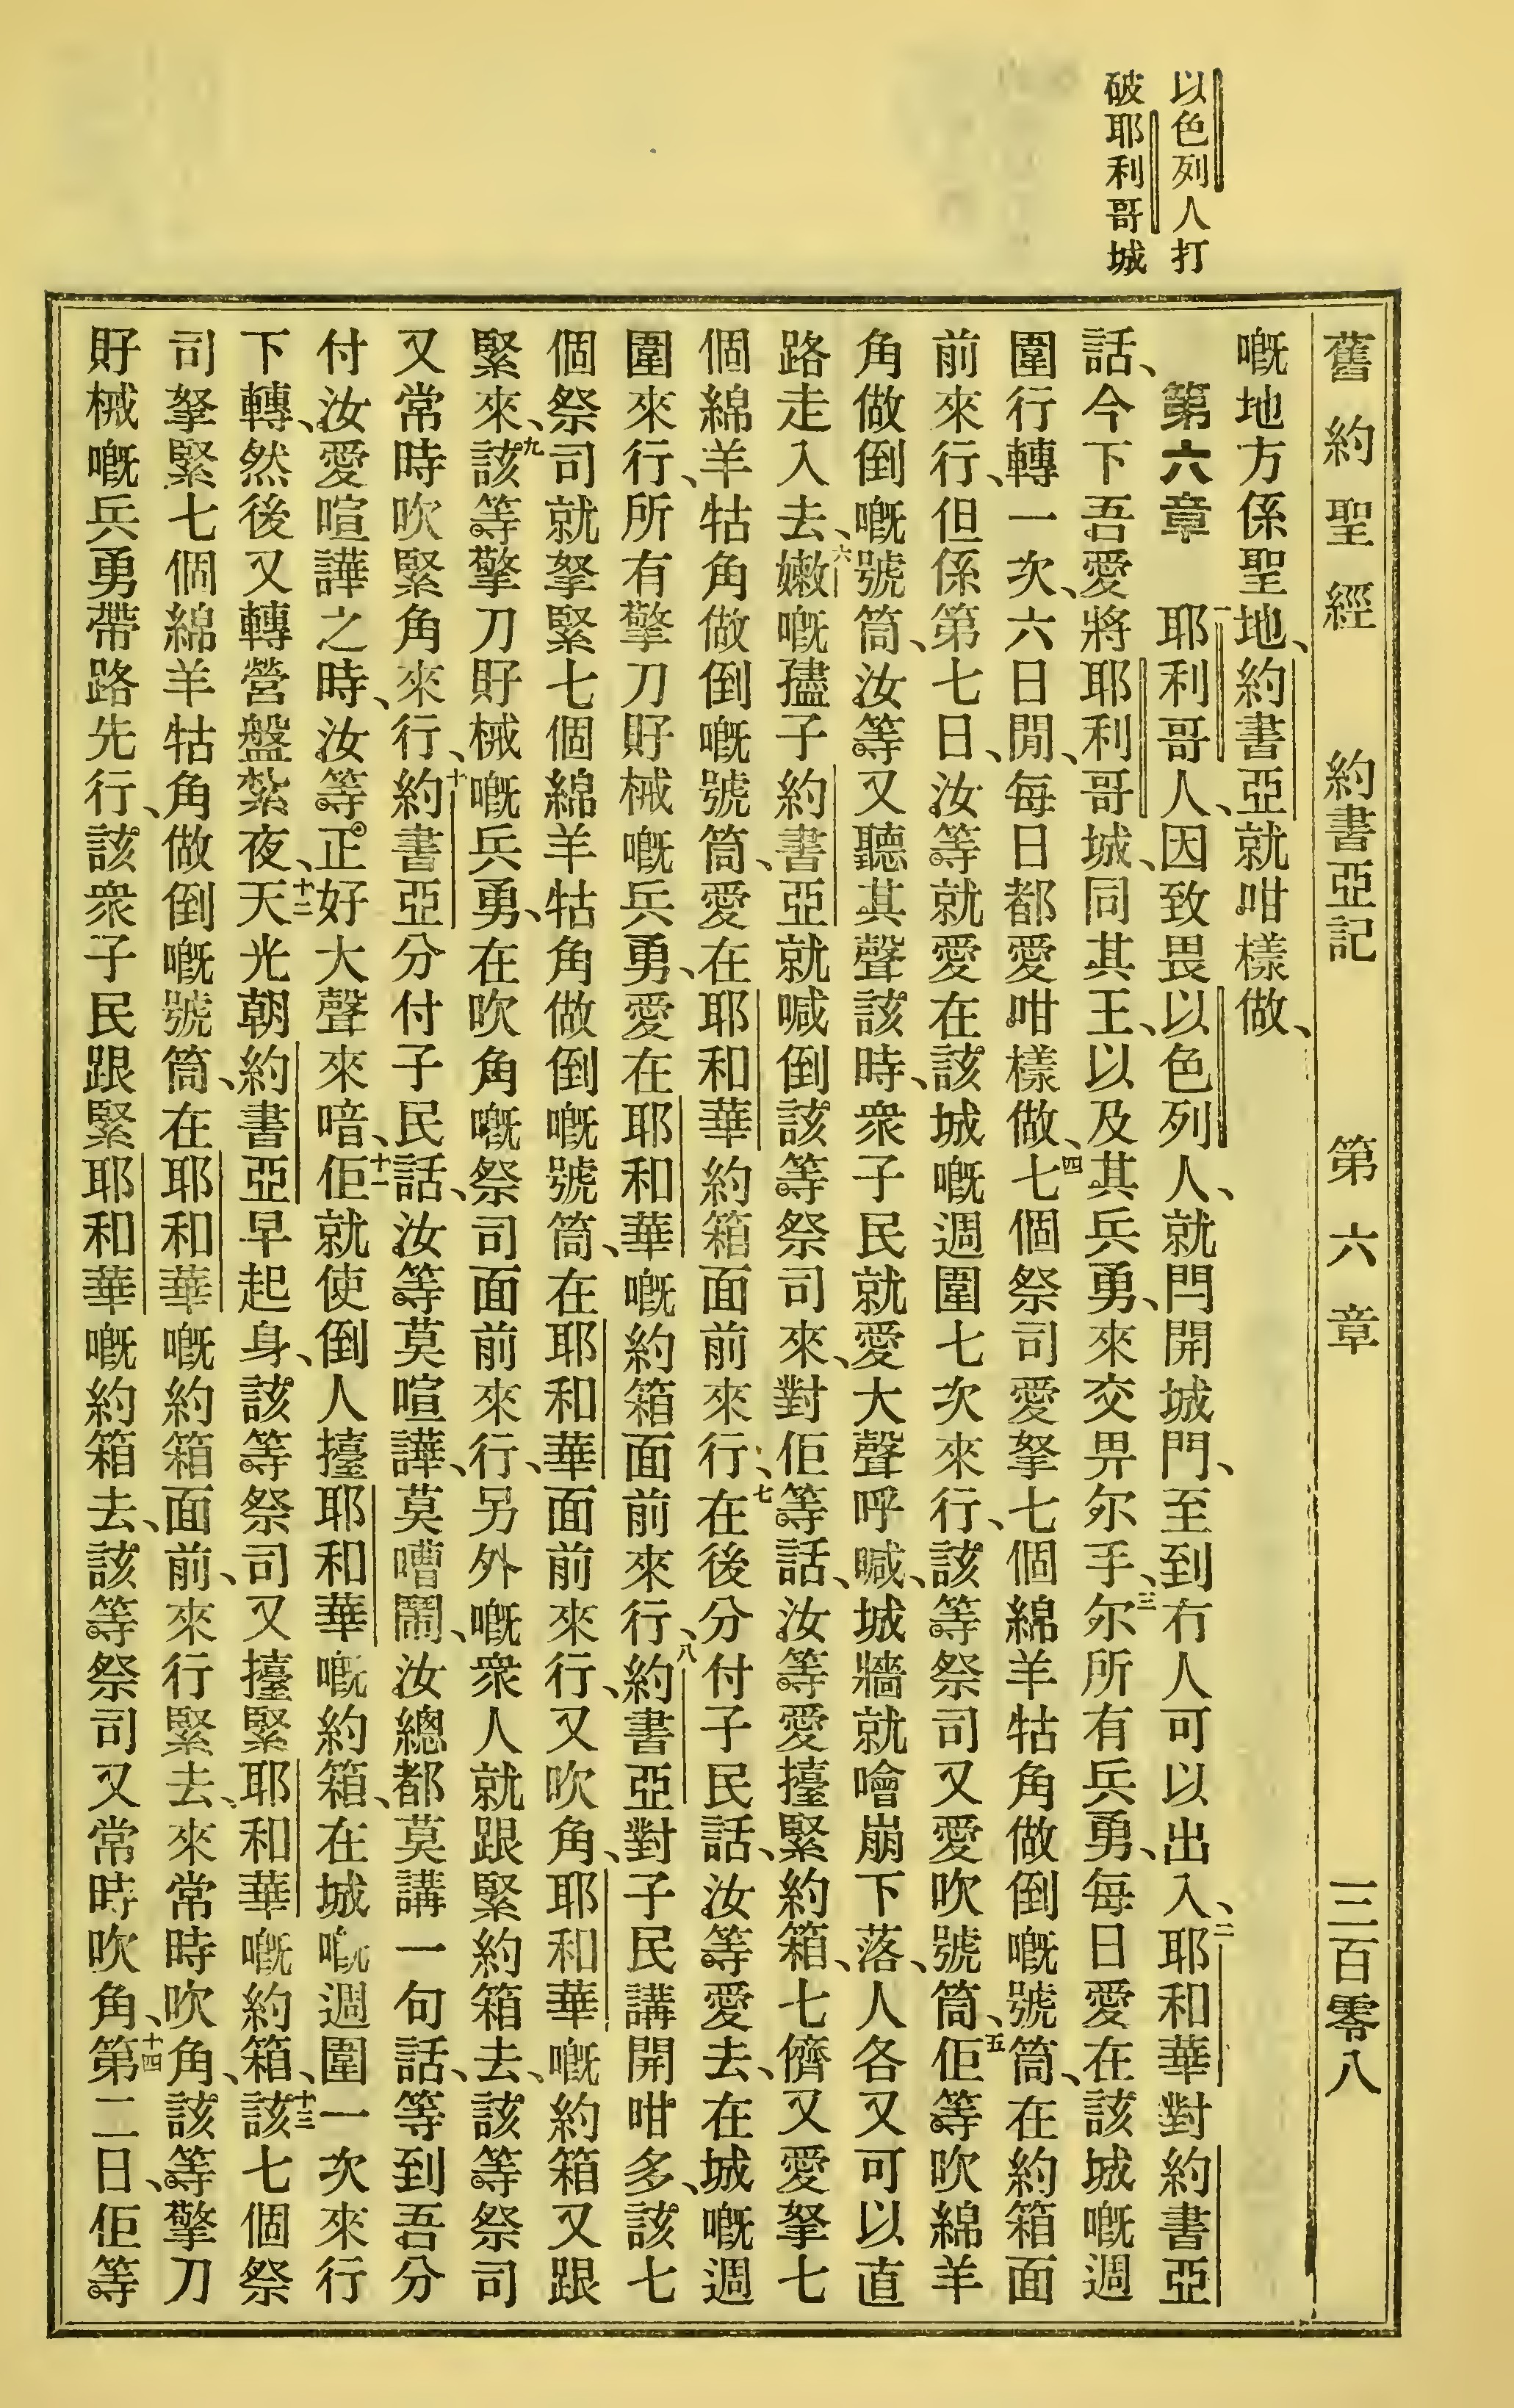 以色列人打
破耶利哥城
舊約聖經　約書亞記　第六章　三百零八
嘅地方係聖地、約書亞就咁樣做、
第六章　一耶利哥人、因致畏以色列人、就閂開城門、至到冇人可以出入、二耶和華對約書亞
話、今下吾愛將耶利哥城、同其王、以及其兵勇、來交畀尔手、三尔所有兵勇、每日愛在該城嘅週
圍行轉一次、六日閒、每日都愛咁樣做、四七個祭司愛拏七個綿羊牯角做倒嘅號筒、在約箱面
前來行、但係第七日、汝等就愛在該城嘅週圍七次來行、該等祭司又愛吹號筒、五佢等吹綿羊
角做倒嘅號筒、汝等又聽其聲該時、衆子民就愛大聲呼喊、城牆就噲崩下落、人各又可以直
路走入去、六嫩嘅孻子約書亞就喊倒該等祭司來、對佢等話、汝等愛擡緊約箱、七儕又愛拏七
個綿羊牯角做倒嘅號筒、愛在耶和華約箱面前來行、七在後分付子民話、汝等愛去、在城嘅週
圍來行、所有擎刀䝼械嘅兵勇、愛在耶和華嘅約箱面前來行、八約書亞對子民講開咁多、該七
個祭司就拏緊七個綿羊牯角做倒嘅號筒、在耶和華面前來行、又吹角、耶和華嘅約箱又跟
緊來、九該等擎刀䝼械嘅兵勇、在吹角嘅祭司面前來行、另外嘅衆人就跟緊約箱去、該等祭司
又常時吹緊角來行、十約書亞分付子民話、汝等莫喧譁、莫嘈鬧、汝總都莫講一句話、等到吾分
付汝愛喧譁之時、汝等正好大聲來喑、十一佢就使倒人擡耶和華嘅約箱、在城嘅週圍一次來行
下轉、然後又轉營盤紮夜、十二天光朝約書亞早起身、該等祭司又擡緊耶和華嘅約箱、十三該七個祭
司拏緊七個綿羊牯角做倒嘅號筒、在耶和華嘅約箱面前、來行緊去、來常時吹角、該等擎刀
䝼械嘅兵勇帶路先行、該衆子民跟緊耶和華嘅約箱去、該等祭司又常時吹角、十四第二日、佢等